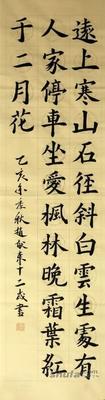 遠上寒山石徑斜白雲生處有
人家停車坐愛楓林晚霜葉紅
于二月花
乙亥季秋趙十二歲書